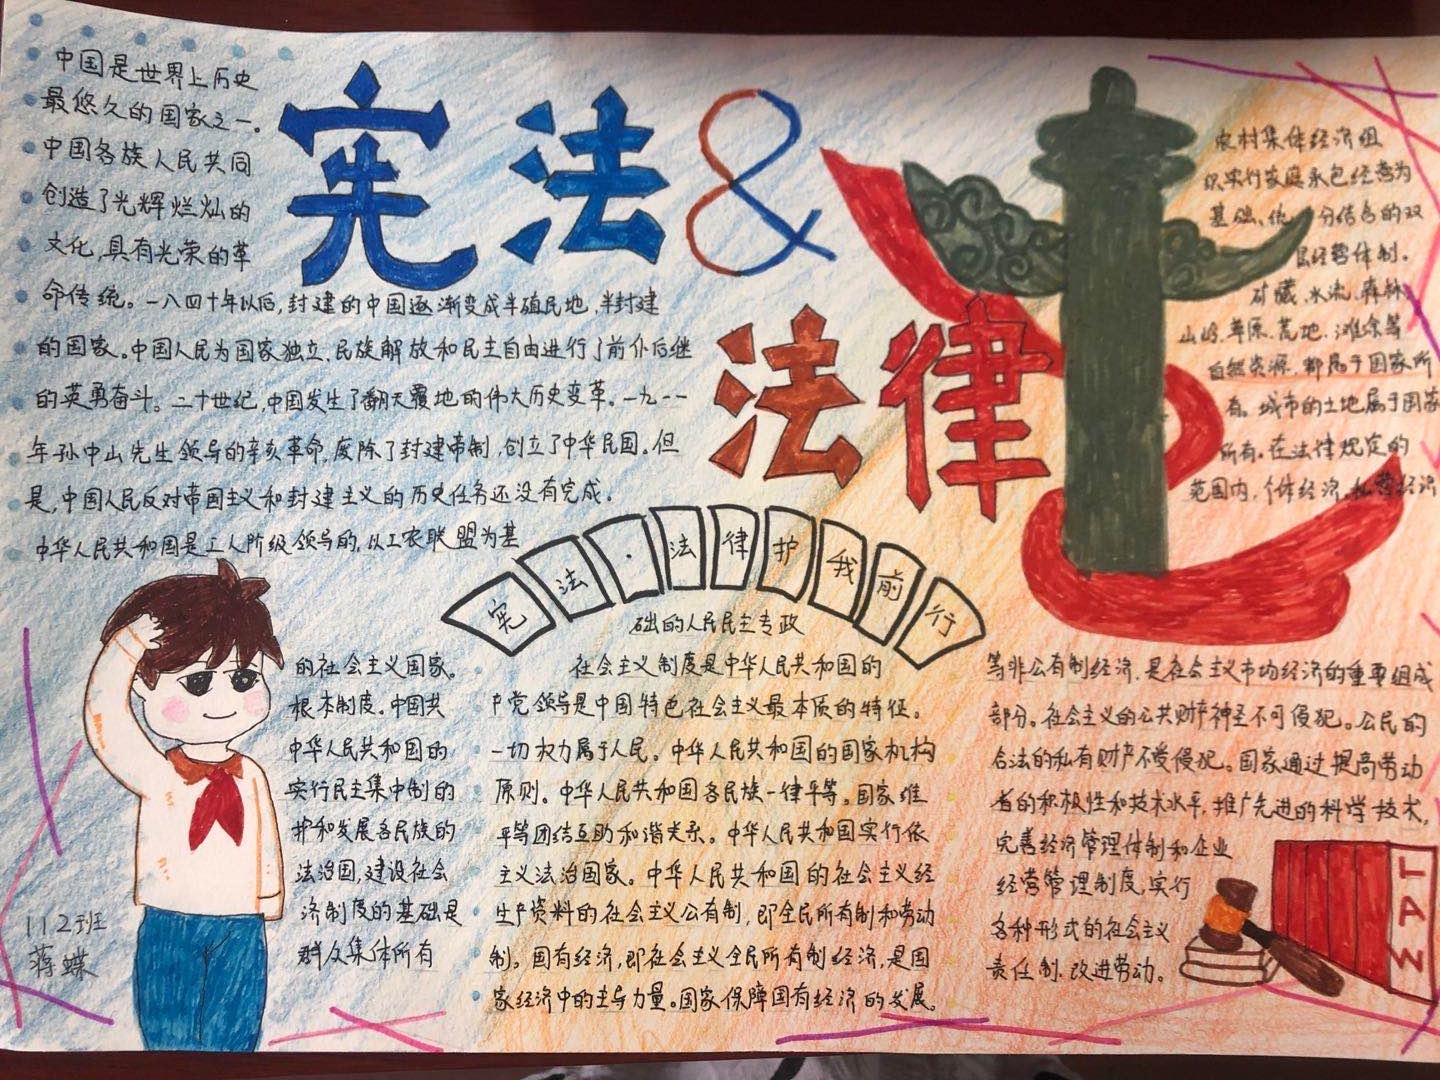 宪法&
法律
中国是世界上历史
最悠久的国家之一。
中国各族人民共同
创造了光辉灿烂的
文化,具有光荣的革
命传统。一八四十年以后,封建的中国逐渐变成半殖民地,半封建
的国家。中国人民为国家独立、民族解放和民主自由进行了前仆后继
的英勇奋斗。二十世纪,中国发生了翻天覆地的伟大历史变革。一九一一
年孙中山先生领导的辛亥革命,废除了封建帝制,创立了中华民国。但
是,中国人民反对帝国主义和封建主义的历史任务还没有完成。
中华人民共和国是工人阶级领导的,以工农联盟为基
宪法·法律护我前行
础的人民民主专政
的社会主义国家。 社会主义制度是中华人民共和国的
根本制度。中国共产党领导是中国特色社会主义最本质的特征。
中华人民共和国的一切权力属于人民。中华人民共和国的国家机构
实行民主集中制的原则。中华人民共和国各民族一律平等。国家维
护和发展各民族的平等团结互助和谐关系。中华人民共和国实行依
法治国,建设社会主义法治国家。中华人民共和国的社会主义经
济制度的基础是生产资料的社会主义公有制,即全民所有制和劳动
群众集体所有制。国有经济,即社会主义全民所有制经济,是国
家经济中的主导力量。国家保障国有经济的发展。
农村集体经济组
织实行家庭承包经营为
基础、统 分结合的双
层经营体制。
矿藏、水流、森林、
山岭、草原、荒地、滩涂等
自然资源,都属于国家所
有。城市的土地属于国家
所有。在法律规定的
范围内,个体经济、私营经济
等非公有制经济,是社会主义市场经济的重要组成
部分。社会主义的公共财产神圣不可侵犯。公民的
合法的私有财产不受侵犯。国家通过提高劳动
者的积极性和技术水平,推广先进的科学技术,
完善经济管理体制和企业
经营管理制度,实行
各种形式的社会主义
责任制,改进劳动。
LAW
112班
蒋蝶